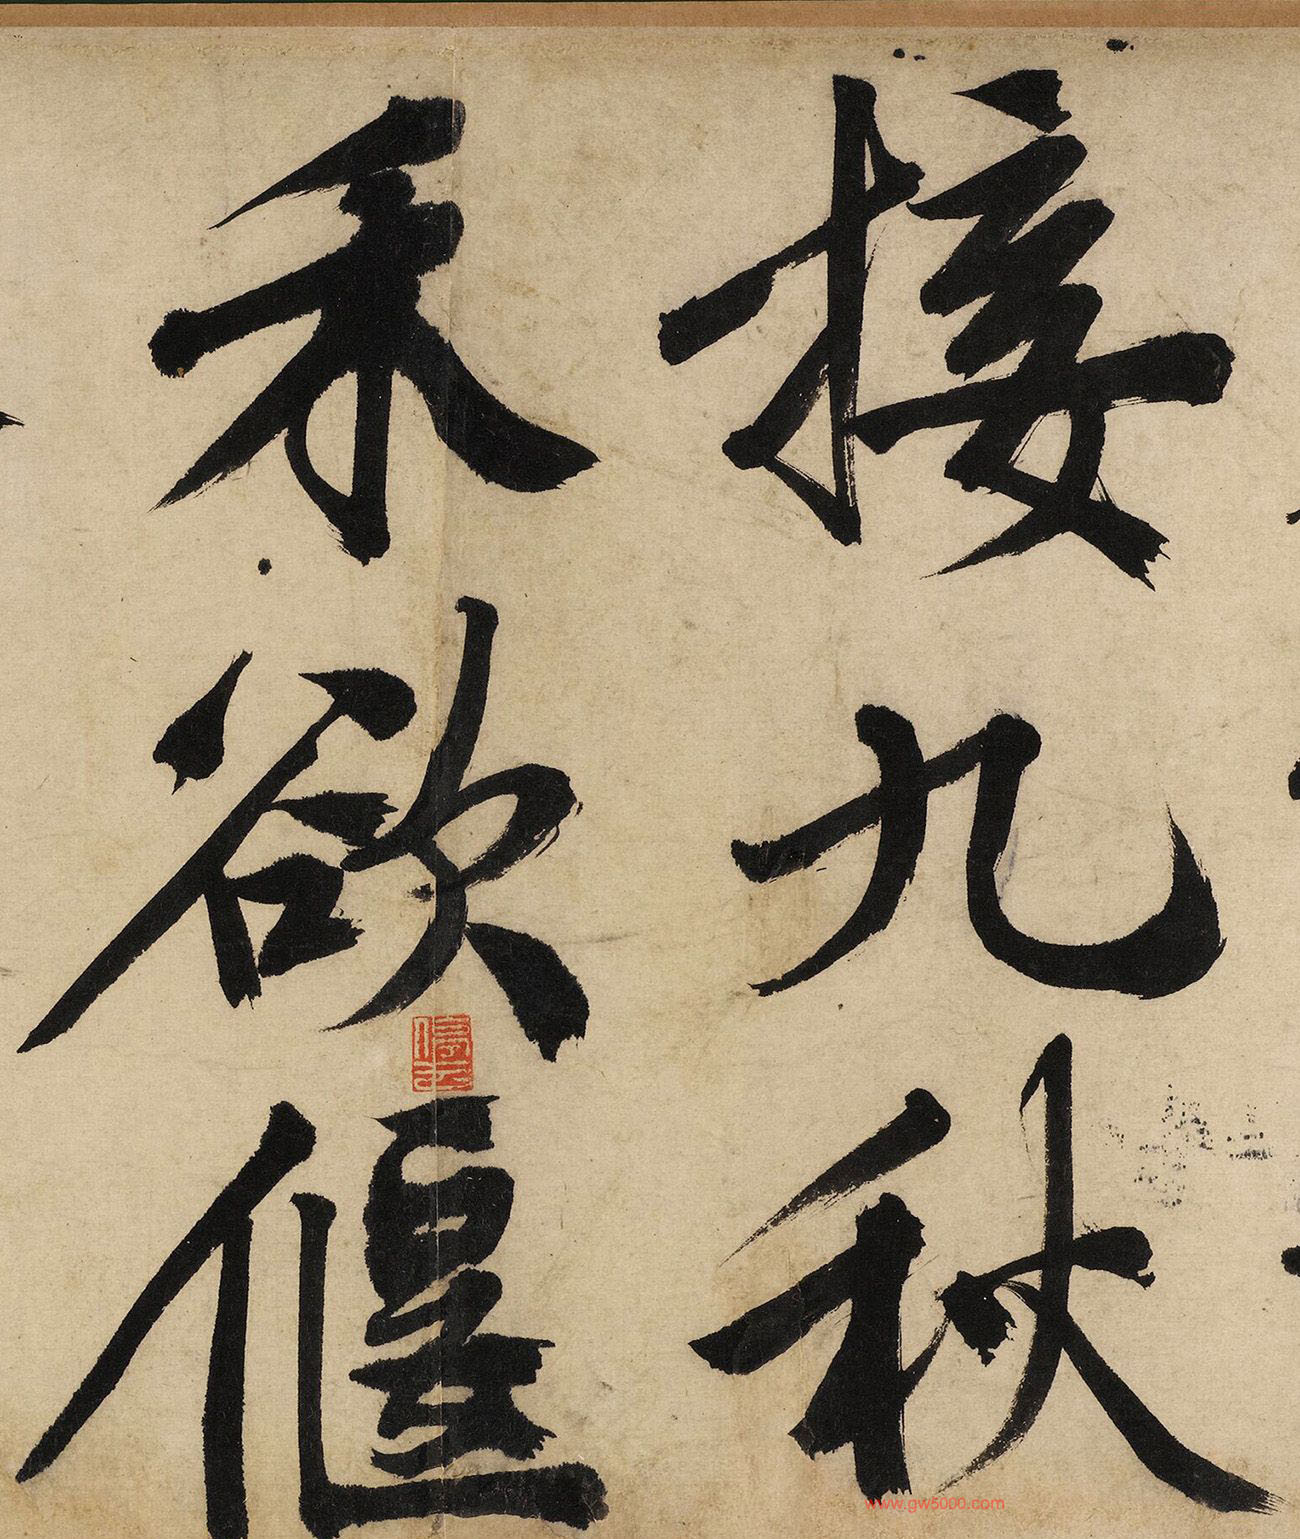 接九秋
禾欲偃
www.gw5000.com